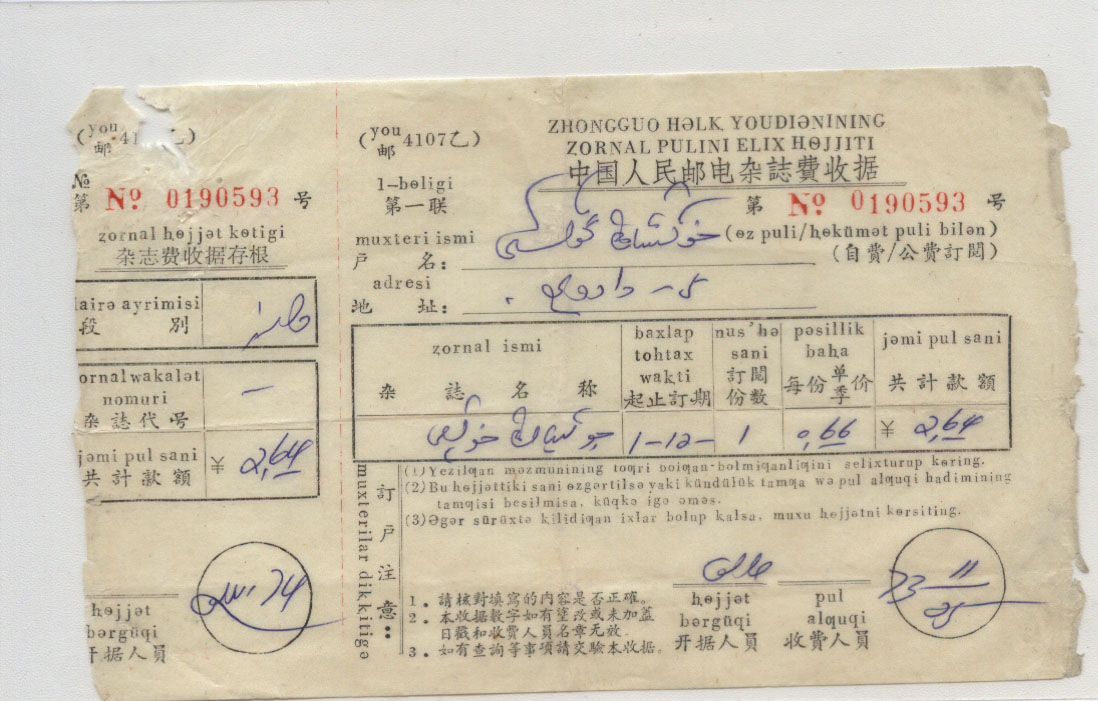 (you邮 41 乙)
№
第 Nº 0190593 号
zornal hɵjjət kɵtigi
杂志费收据存根
airə ayrimisi
段 别
ornal wakalət
nomuri
杂誌代号
—
jəmi pul sani
共计款额
¥ 2,64
hɵjjət
bərgüqi
开据人员
74
(you邮 4107乙)
ZHONGGUO HƏLK YOUDIƏNINING
ZORNAL PULINI ELIX HɵJJITI
中国人民邮电杂誌費收据
1-bɵligi
第一联
第 Nº 0190593 号
muxteri ismi
(ɵz puli/hɵkümət puli bilən)
户 名:
(自費/公費訂閱)
adresi
地 址:
zornal ismi
杂 誌 名 称
baxlap
tohtax
wakti
起止訂期
nus'hə
sani
訂閱
份数
pəsillik
baha
每份单季价
jəmi pul sani
共计款額
1-12-
1
0,66
¥ 2,64
muxterilar dikkitigə
訂户注意:
(1) Yezilƣan məzmunining toƣri bolƣan-bolmiƣanliƣini selixturup kɵring.
(2) Bu hɵjjəttiki sani ɵzgərtilsə yaki kündülük tamƣa wə pul alƣuqi hadimining
tamƣisi besilmisa, küqkə igə əməs.
(3) Əgər sürüxtə kilidiƣan ixlar bolup kalsa, muxu hɵjjətni kɵrsiting.
1. 請核对填寫的内容是否正確。
2. 本收据数字如有塗改或未加蓋
日戳和收費人員名章无效。
3. 如有查詢等事項請交驗本收据。
hɵjjət
bərgüqi
开据人员
pul
alƣuqi
收费人员
73 11
25